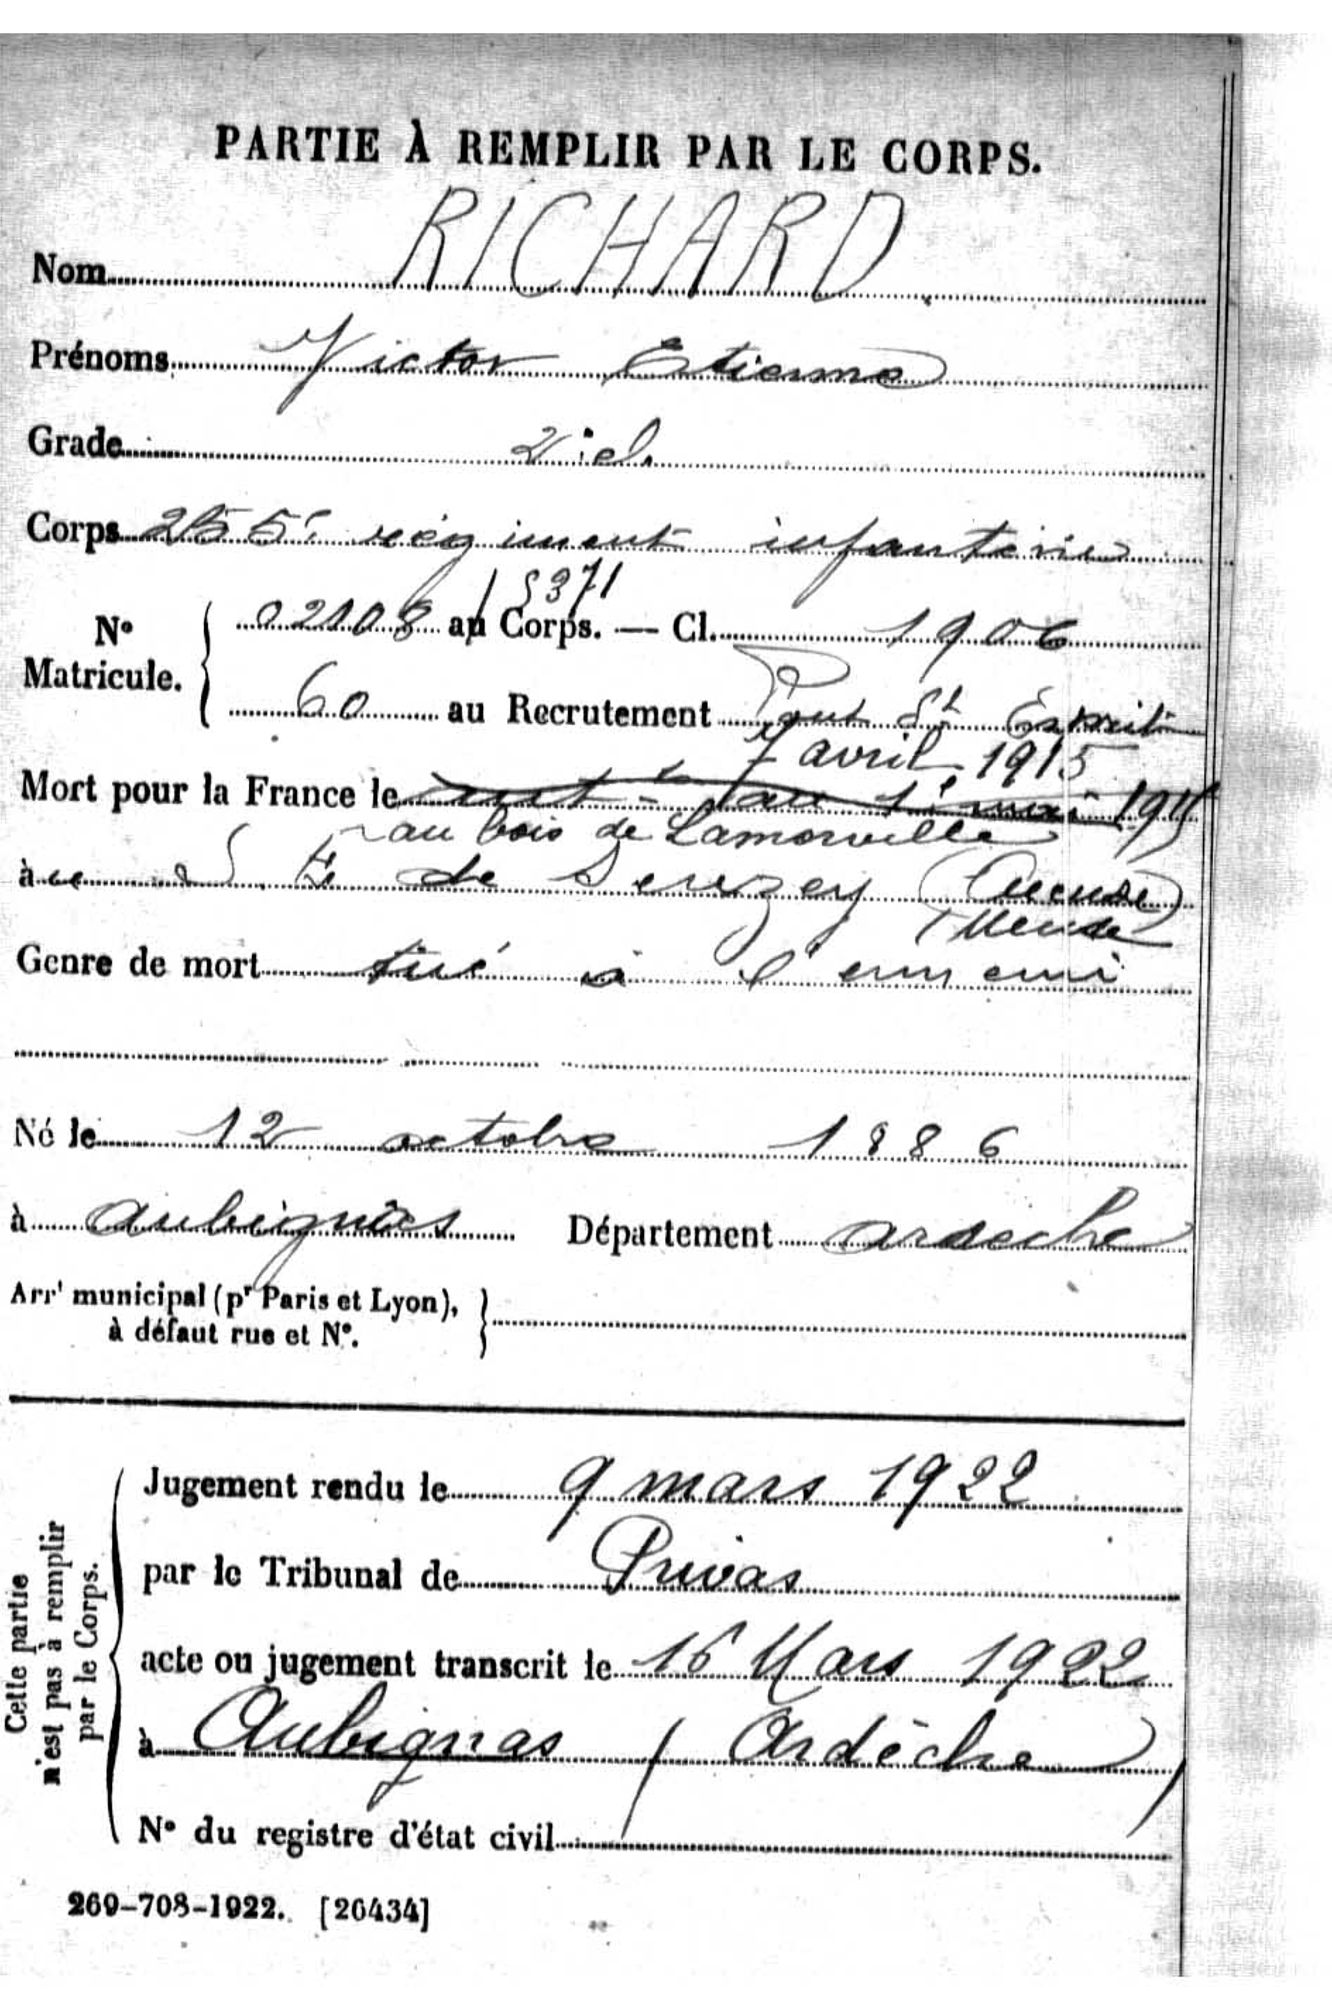 PARTIE À REMPLIR PAR LE CORPS.
Nom RICHARD
Prénoms Victor Etienne
Grade 2e cl.
Corps 255e régiment infanterie
15371
N° Matricule. 02108 au Corps. — Cl. 1906
60 au Recrutement Pont St Esprit
7 avril 1915
Mort pour la France le 1er mai 1915
au bois de Lamorville
à de Seuzey (Meuse)
Meuse
Genre de mort tué à l'ennemi
Né le 12 octobre 1886
à aubignas Département ardeche
Arrt municipal (pr Paris et Lyon),
à défaut rue et N°.
Cette partie
n'est pas à remplir
par le Corps.
Jugement rendu le 9 mars 1922
par le Tribunal de Privas
acte ou jugement transcrit le 16 Mars 1922
à Aubignas (Ardèche)
N° du registre d'état civil
269-708-1922. [26434]